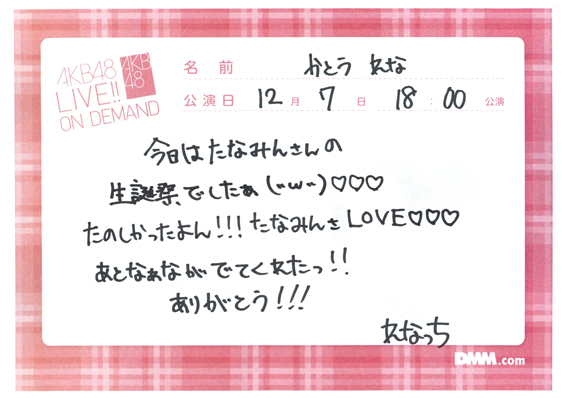 AKB48
LIVE!!
ON DEMAND
AKB
48
名前 かとう れな
公演日 12月 7日 18:00 公演
今日はたなみんさんの
生誕祭でしたぁ(˘ω˘)♡♡♡
たのしかったよん!!!たなみんさLOVE♡♡♡
あとなぁながでてくれたっ!!
ありがとう!!!
れなっち
DMM.com